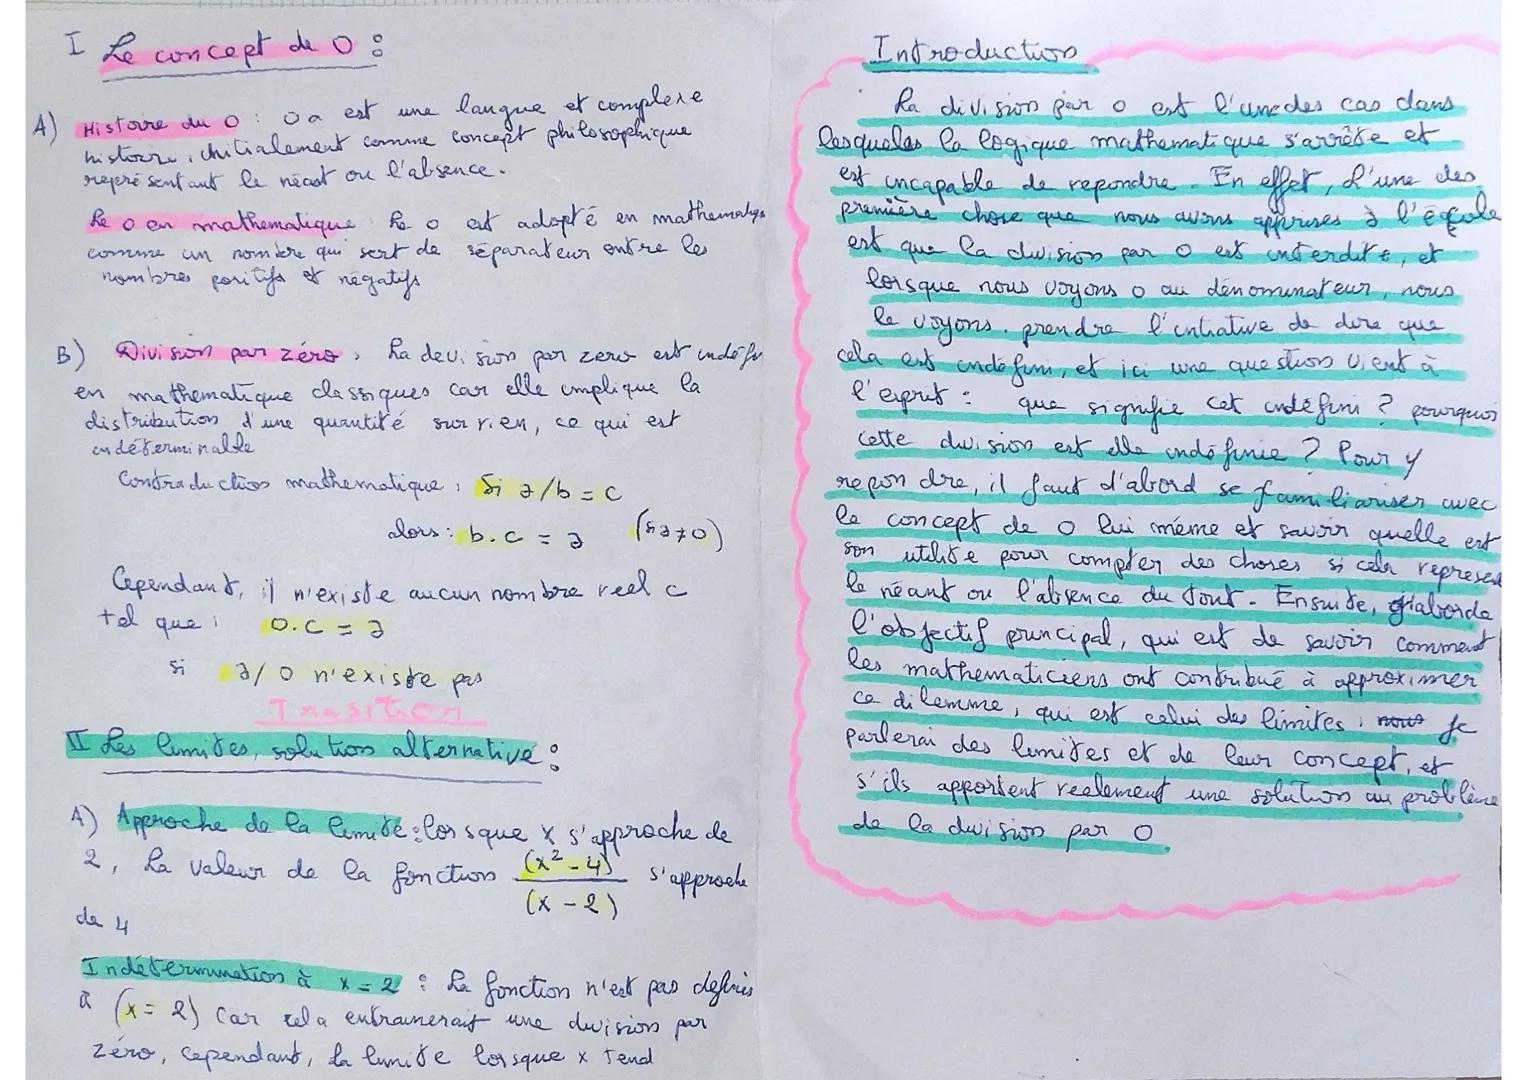 I Le concept de 0 :
A) Histoire du 0 : 0 a est une langue et complexe
histoire, initialement comme concept philosophique
représentant le néant ou l'absence.
Le 0 en mathematique : Le 0 est adopté en mathematiqu
comme un nombre qui sert de séparateur entre les
nombres positifs et négatifs
B) Division par zéro, La devision par zero est indéfi
en mathematique classiques car elle implique la
distribution d'une quantité sur rien, ce qui est
indéterminable
Contradiction mathematique : Si a/b = c
alors : b.c = a (si a≠0)
Cependant, il n'existe aucun nombre reel c
tel que : 0.c = a
si a/0 n'existe pas
Trasition
II Les limites, solution alternative :
A) Approche de la limite : lorsque x s'approche de
2, La valeur de la fonction (x² - 4) / (x - 2) s'approche
de 4
Indétermination à x = 2 : La fonction n'est pas définis
à (x = 2) Car cela entrainerait une division par
zéro, cependant, la limite lorsque x tend
Introduction
La division par 0 est l'une des cas dans
lesqueles la logique mathematique s'arrête et
est incapable de repondre. En effet, L'une des
première chose que nous avons apprises à l'école
est que la division par 0 est interdite, et
lorsque nous voyons 0 au dénominateur, nous
le voyons. prendre l'intiative de dire que
cela est indéfini, et ici une question vient à
l'esprit : que signifie cet indéfini ? pourquoi
cette division est elle indéfinie ? Pour y
repondre, il faut d'abord se familiariser avec
le concept de 0 lui même et savoir quelle est
son utilité pour compter des choses si cela represe
le néant ou l'absence du tout. Ensuite, j'aborde
l'objectif principal, qui est de savoir comment
les mathematiciens ont contribué à approximer
ce dilemme, qui est celui des limites, nous je
parlerai des limites et de leur concept, et
s'ils apportent reelement une solution au problème
de la division par 0.